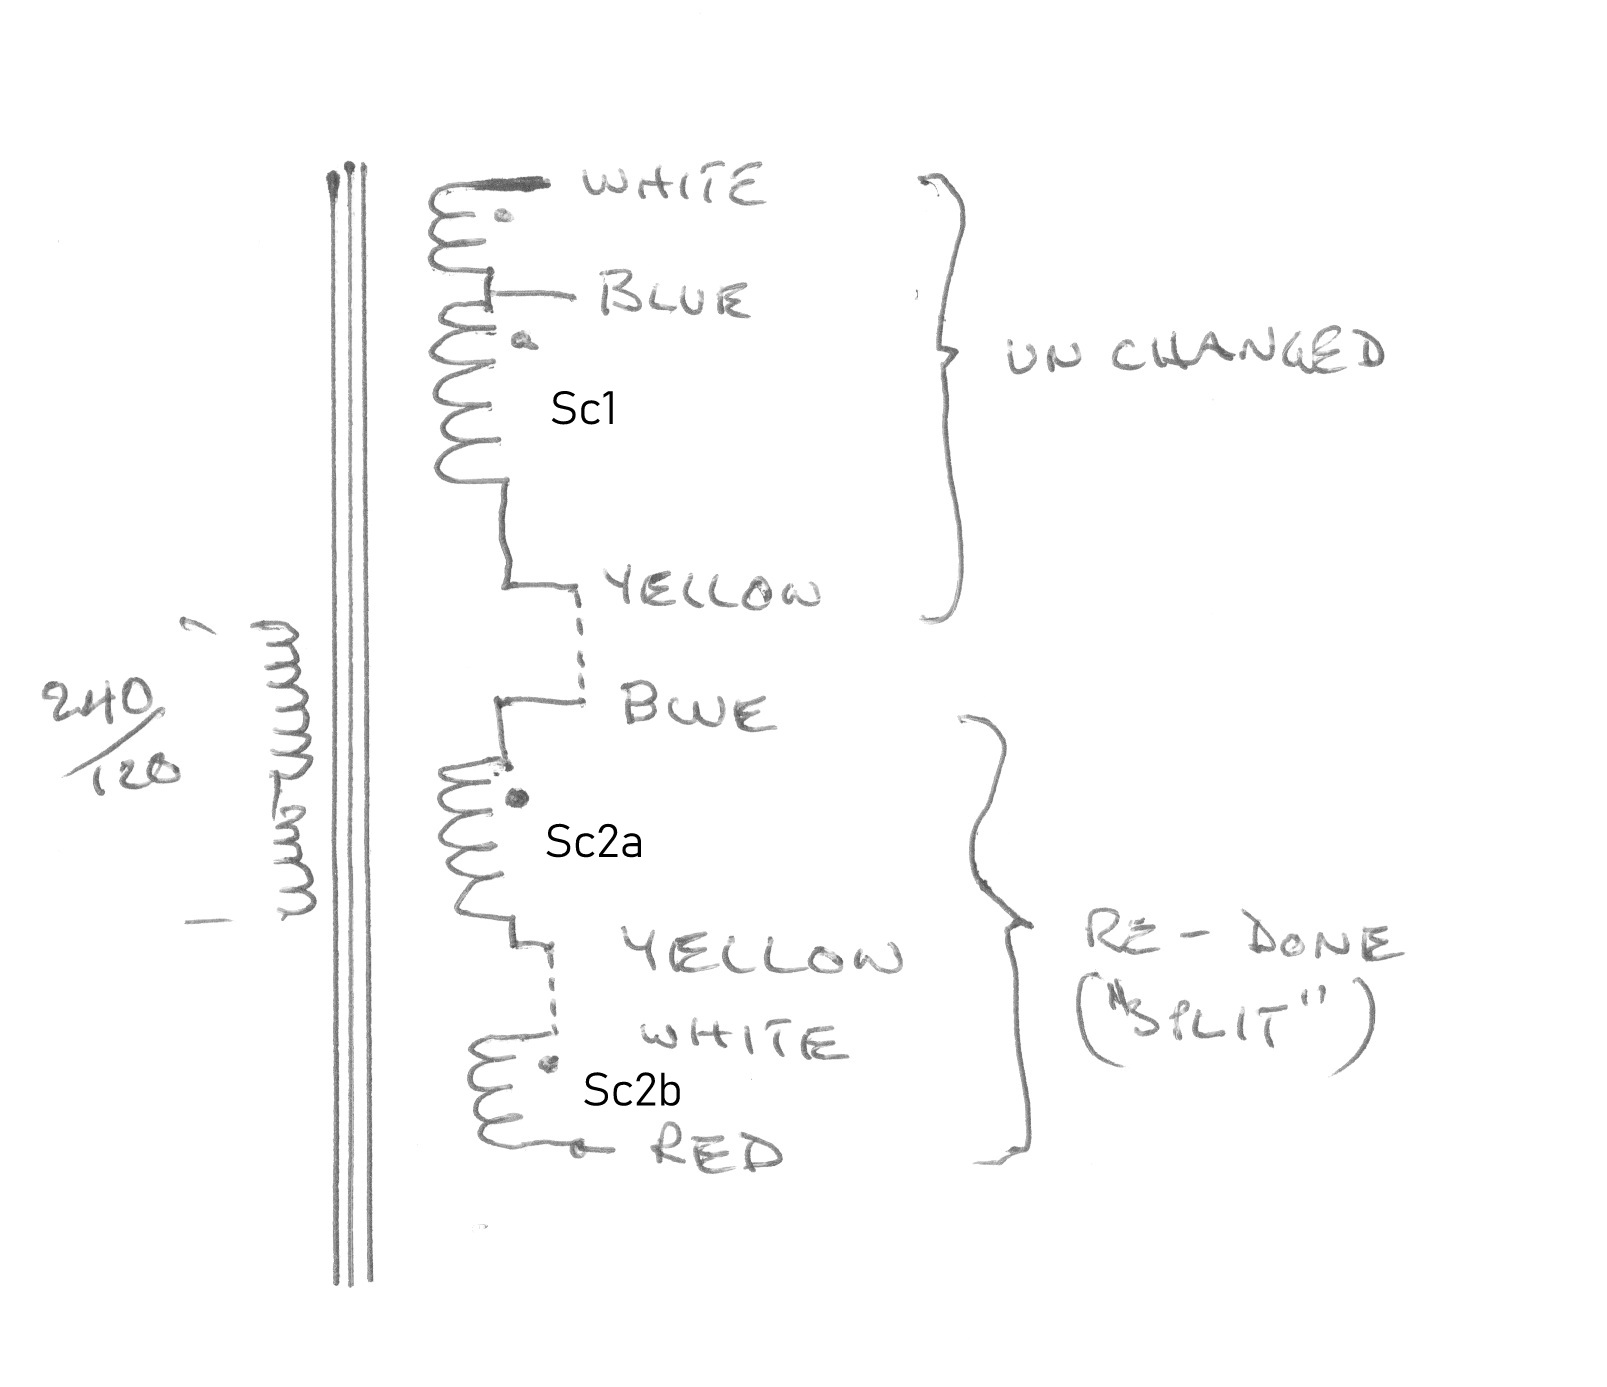 WHITE
BLUE
UN CHANGED
Sc1
YELLOW
240
/
120
BLUE
Sc2a
YELLOW
RE - DONE
("SPLIT")
WHITE
Sc2b
RED